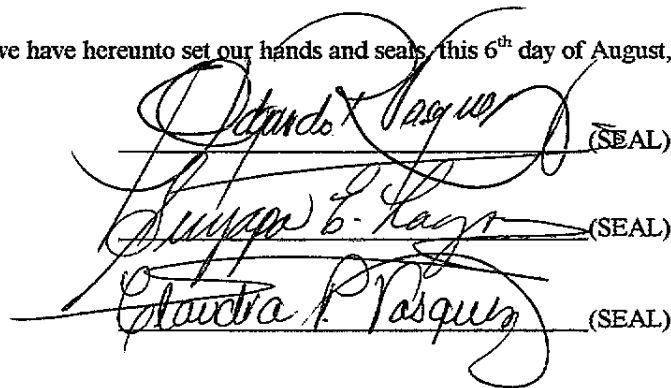 we have hereunto set our hands and seals, this 6th day of August,
Vasquez (SEAL)
E. (SEAL)
Claudia P. Vasquez (SEAL)